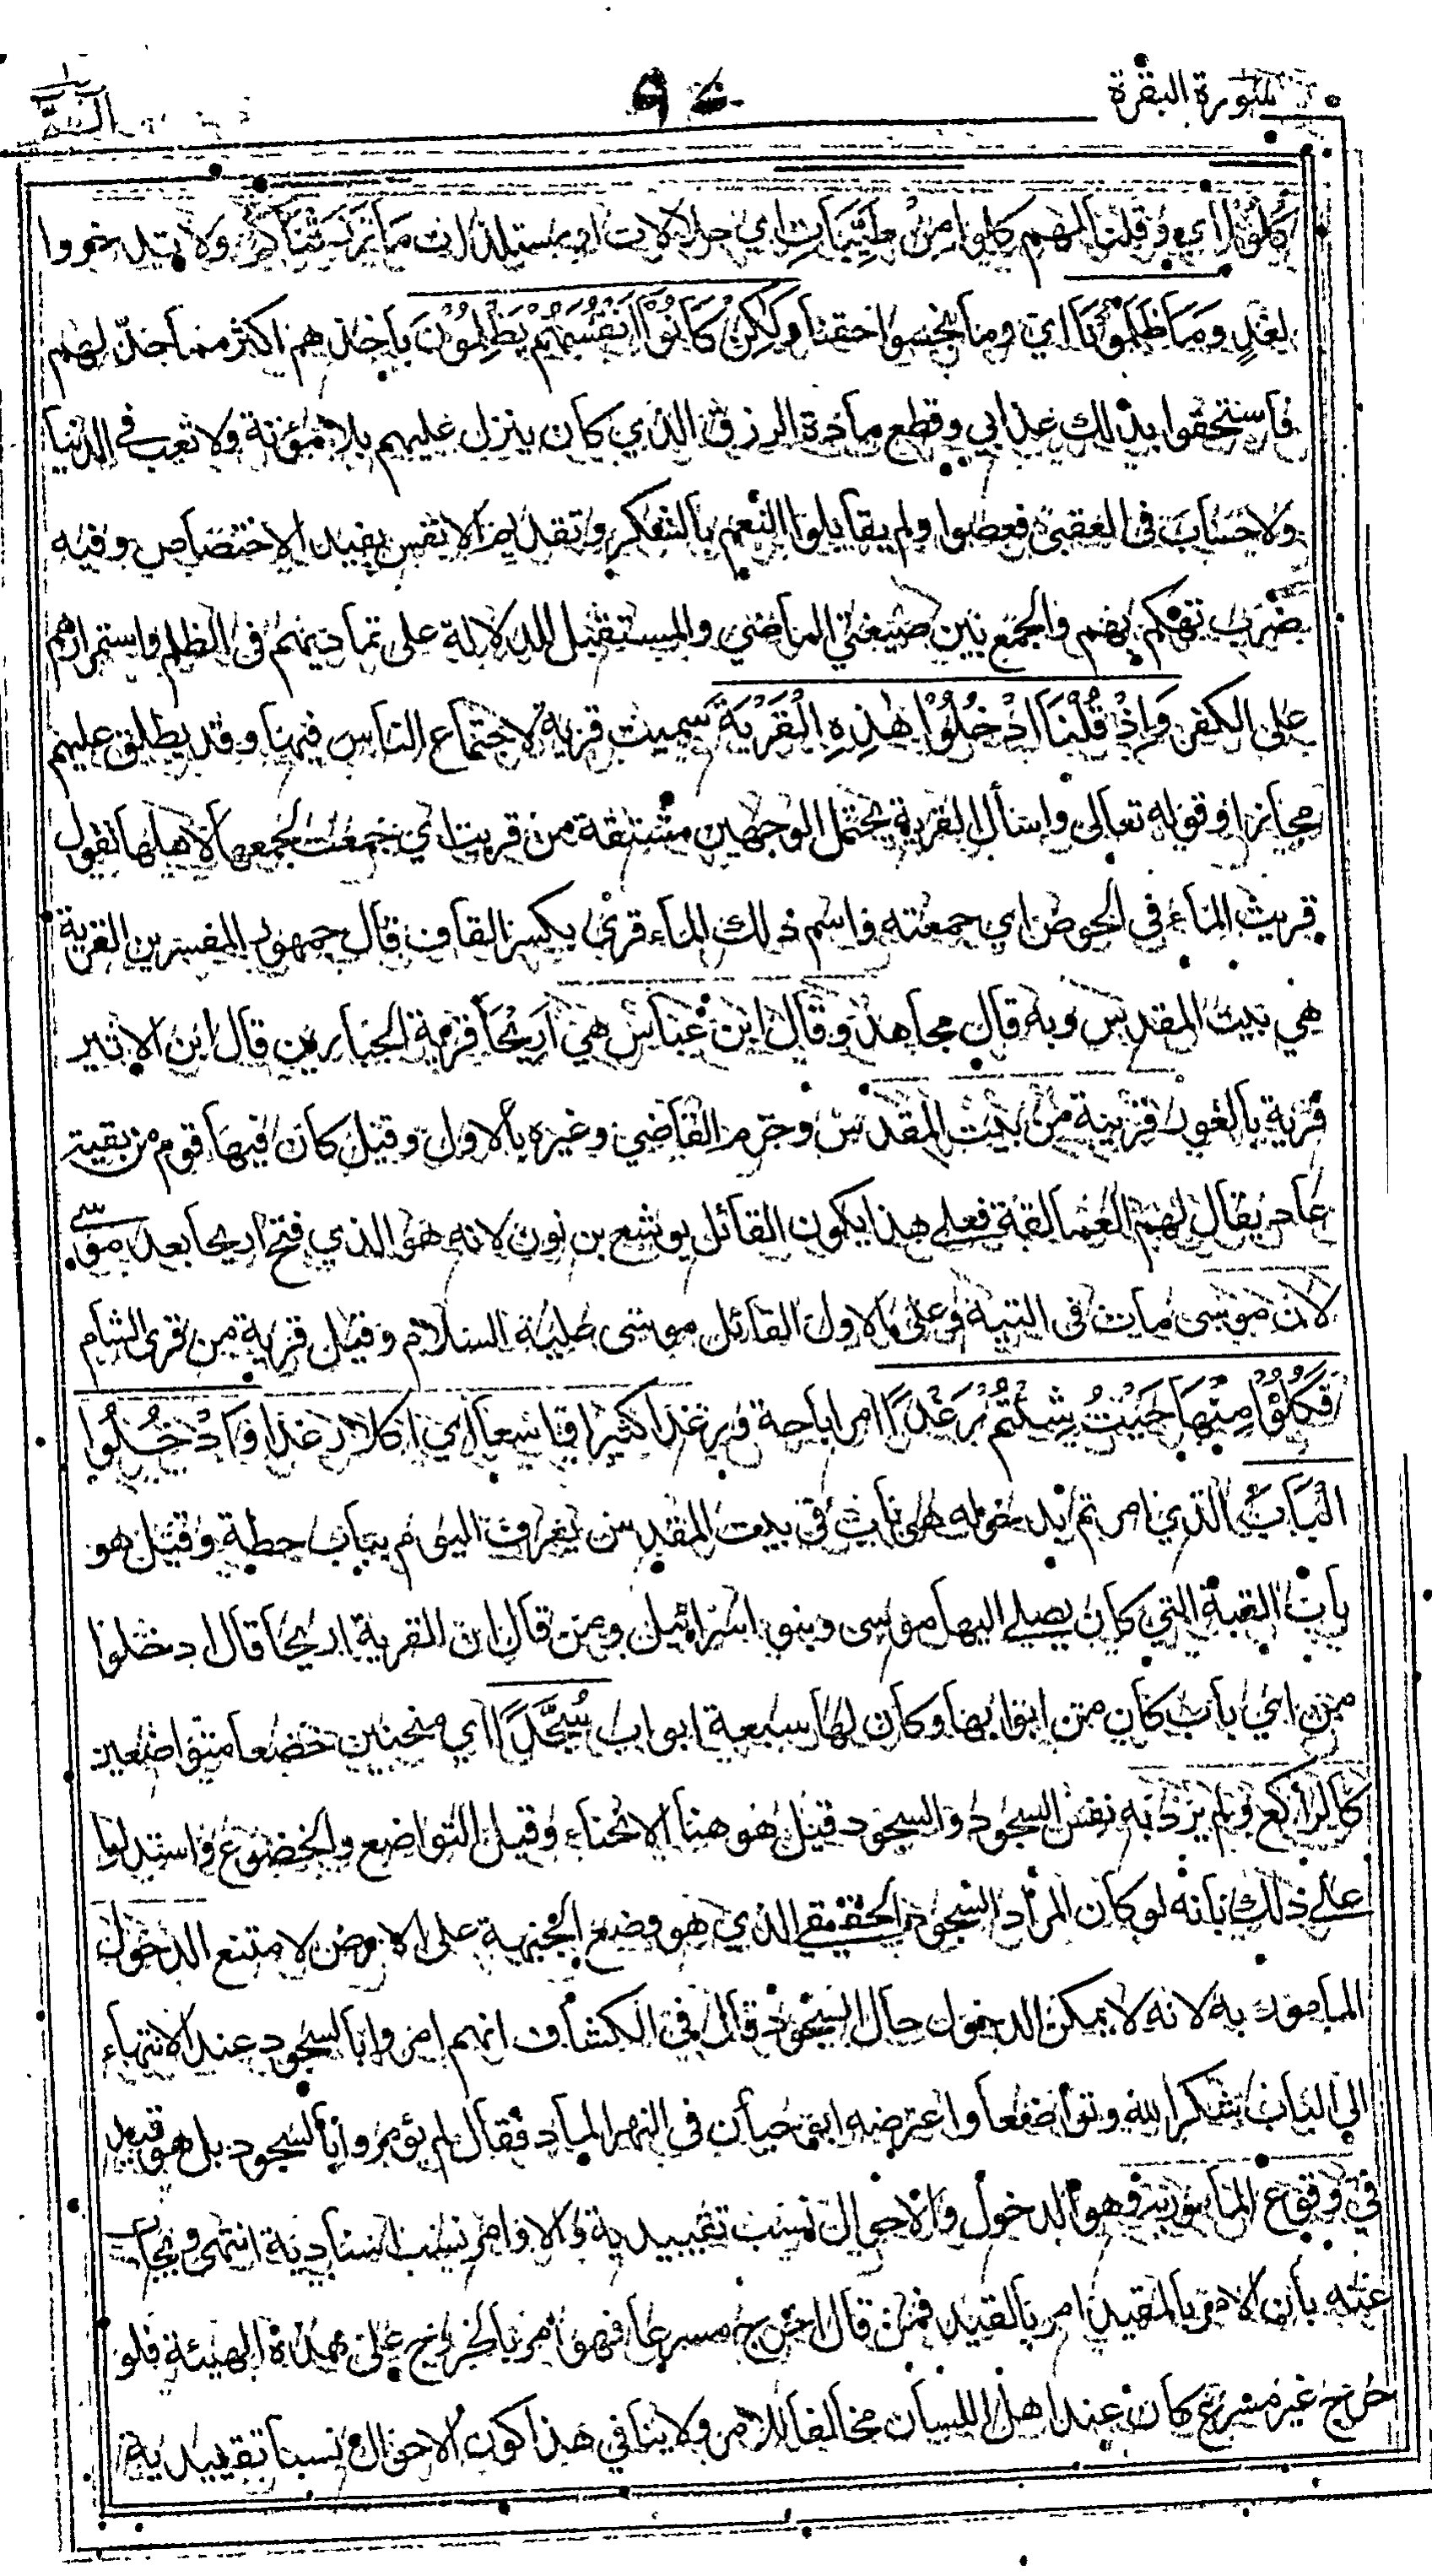 سورة البقرة
كُلُوْا اي وقلنا لهم كلوا مِنْ طَيِّبَاتِ اي حلالات او مستلذات مَا رَزَقْنَاكُمْ ولا تدخروا
لغدٍ وَمَا ظَلَمُوْنَا اي وما بخسوا حقنا وَلٰكِنْ كَانُوْا اَنْفُسَهُمْ يَظْلِمُوْنَ باخذهم اكثر مما حدّ لهم
فاستحقوا بذلك عذابي وقطع مادة الرزق الذي كان ينزل عليهم بلا مؤنة ولا تعب في الدنيا
ولا حساب في العقبى فعصوا ولم يقابلوا النعم بالشكر وتقديم الانفس يفيد الاختصاص وفيه
ضرب تهكم بهم والجمع بين صيغتي الماضي والمستقبل للدلالة على تماديهم في الظلم واستمرارهم
على الكفر وَاِذْ قُلْنَا ادْخُلُوْا هٰذِهِ الْقَرْيَةَ سميت قرية لاجتماع الناس فيها وقد يطلق عليهم
مجازا وقوله تعالى واسأل القرية يحتمل الوجهين مشتقة من قريت اي جمعت لجمعها لاهلها تقول
قريت الماء في الحوض اي جمعته واسم ذلك الماء قرى بكسر القاف قال جمهور المفسرين القرية
هي بيت المقدس وبه قال مجاهد وقال ابن عباس هي اريحا قرية الجبارين قال ابن الاثير
قرية بالغور قريبة من بيت المقدس وجزم القاضي وغيره بالاول وقيل كان فيها قوم من بقية
عاد يقال لهم العمالقة فعلى هذا يكون القائل يوشع بن نون لانه هو الذي فتح اريحا بعد موسى
لان موسى مات في التيه وعلى الاول القائل موسى عليه السلام وقيل قرية من قرى الشام
فَكُلُوْا مِنْهَا حَيْثُ شِئْتُمْ رَغَدًا امر اباحة ورغدا كثيرا واسعا اي اكلا رغدا وَادْخُلُوا
الْبَابَ الذي امرتم بدخوله هو باب في بيت المقدس يعرف اليوم بباب حطة وقيل هو
باب القبة التي كان يصلي اليها موسى وبنو اسرائيل ومن قال ان القرية اريحا قال ادخلوا
من اي باب كان من ابوابها وكان لها سبعة ابواب سُجَّدًا اي منحنين خضعا متواضعين
كالراكع ولم يرد به نفس السجود والسجود قيل هو هنا الانحناء وقيل التواضع والخضوع واستدلوا
على ذلك بانه لو كان المراد السجود الحقيقي الذي هو وضع الجبهة على الارض لامتنع الدخول
المامور به لانه لا يمكن الدخول حال السجود قال في الكشاف انهم امروا بالسجود عند الانتهاء
الى الباب شكرا لله وتواضعا واعترضه ابو حيان في النهر الماد فقال لم يؤمروا بالسجود بل هو قيد
في وقوع المامور به وهو الدخول والاحوال نسب تقييدية والاوامر نسب اسنادية انتهى ويجاب
عنه بان الامر بالمقيد امر بالقيد فمن قال اخرج مسرعا فهو امر بالخروج على هذه الهيئة فلو
خرج غير مسرع كان عند اهل اللسان مخالفا للامر ولا ينافي هذا كون الاحوال نسبا تقييدية